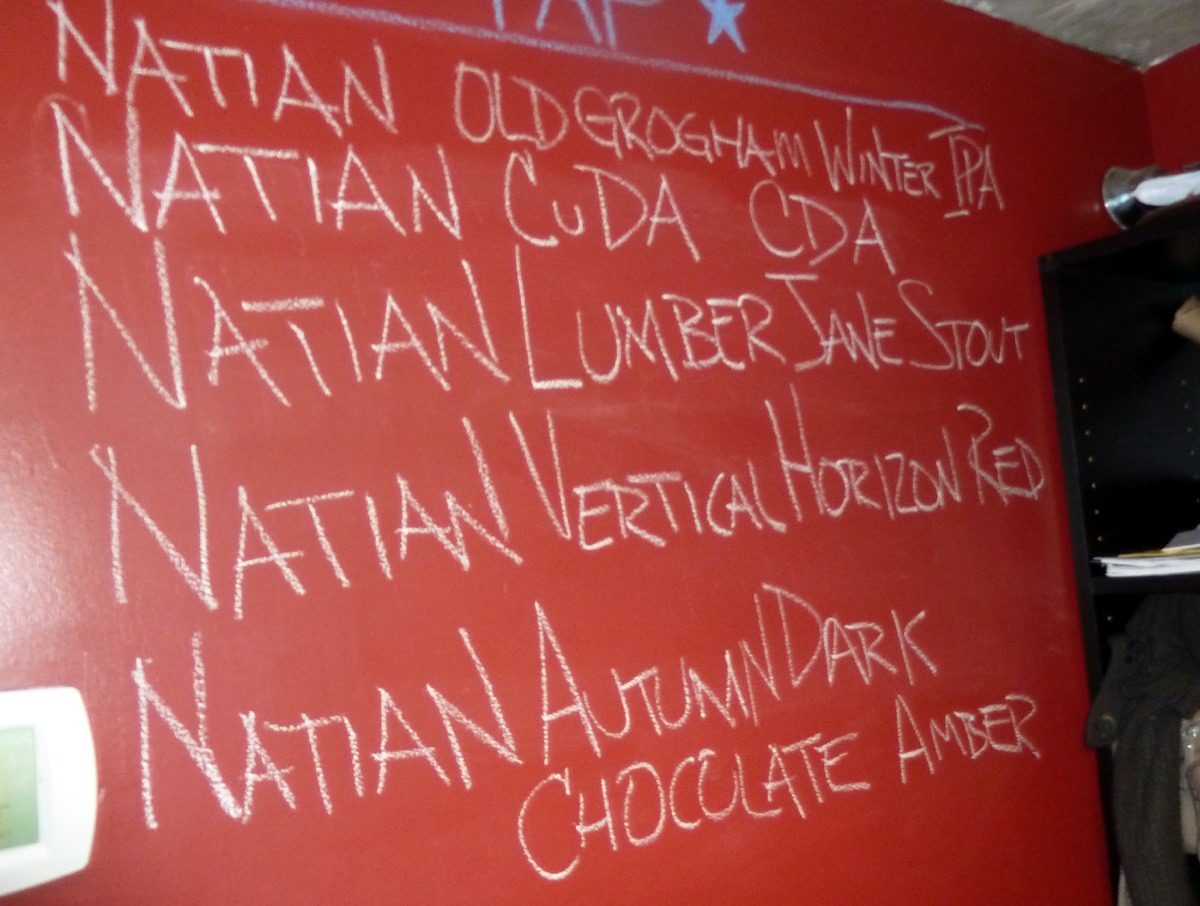 TAP
NATIAN OLD GROGHAM WINTER IPA
NATIAN CUDA CDA
NATIAN LUMBER JANE STOUT
NATIAN VERTICAL HORIZON RED
NATIAN AUTUMN DARK
CHOCOLATE AMBER